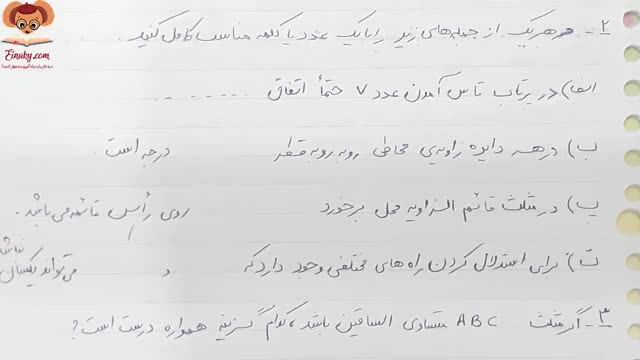 Einaky.com
۲- هر یک از جمله‌های زیر را با یک عدد یا کلمه مناسب کامل کنید.
الف) در پرتاب تاس آمدن عدد ۷ حتماً اتفاق ........
ب) در هر دایره زاویه‌ی محاطی روبه‌رو به قطر درجه است.
پ) در مثلث قائم الزاویه محل برخورد روی رأس قائمه می باشد.
ت) برای استدلال کردن راه های مختلفی وجود دارد که و می تواند یکسان
۳- اگر مثلث ABC متساوی الساقین باشد، کدام گزینه همواره درست است؟